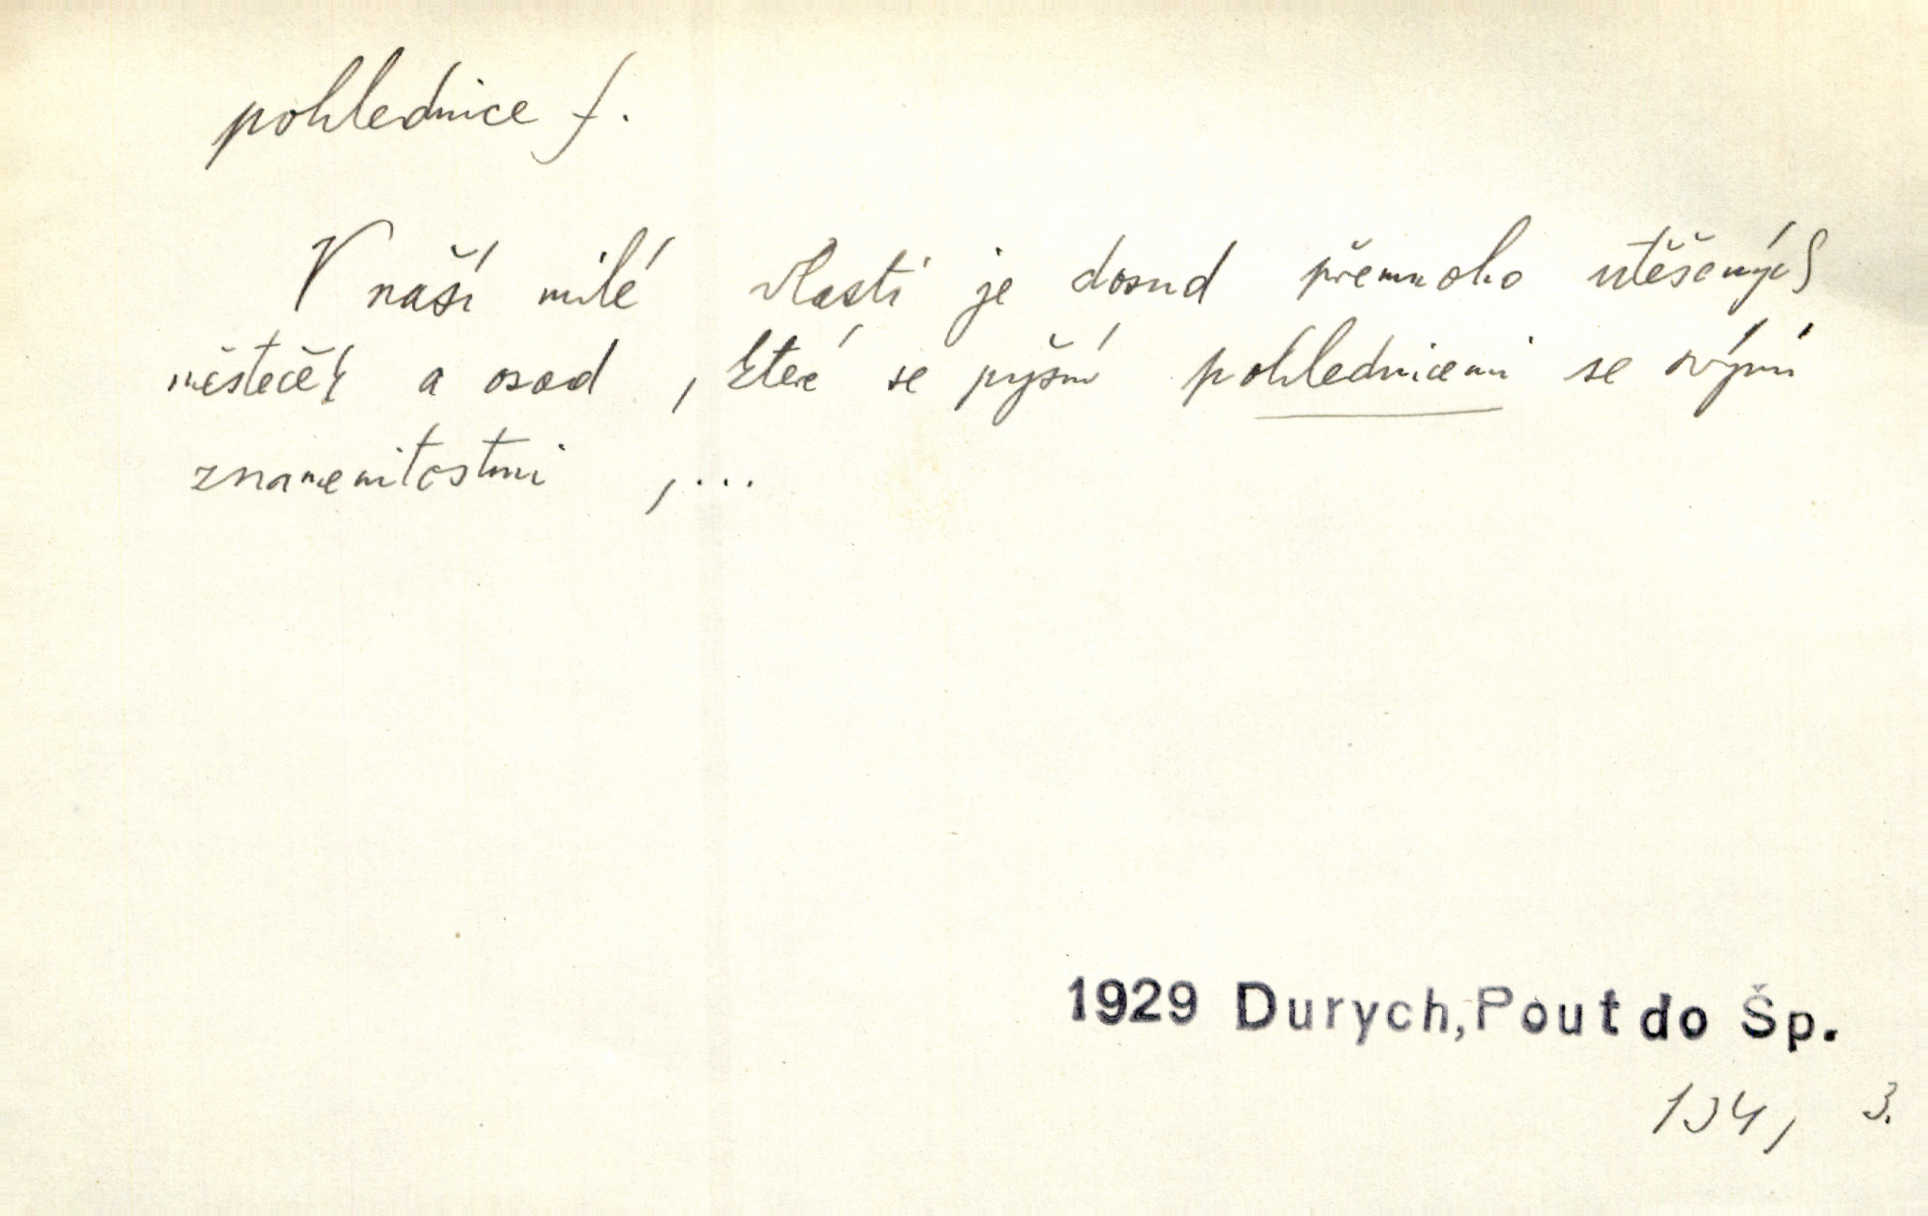 pohlednice f.
V naší milé vlasti je dosud přemnoho utěšených
městeček a osad, které se pyšní pohlednicemi se svými
znamenitostmi ,...
1929 Durych, Pout do Šp.
134, 3.